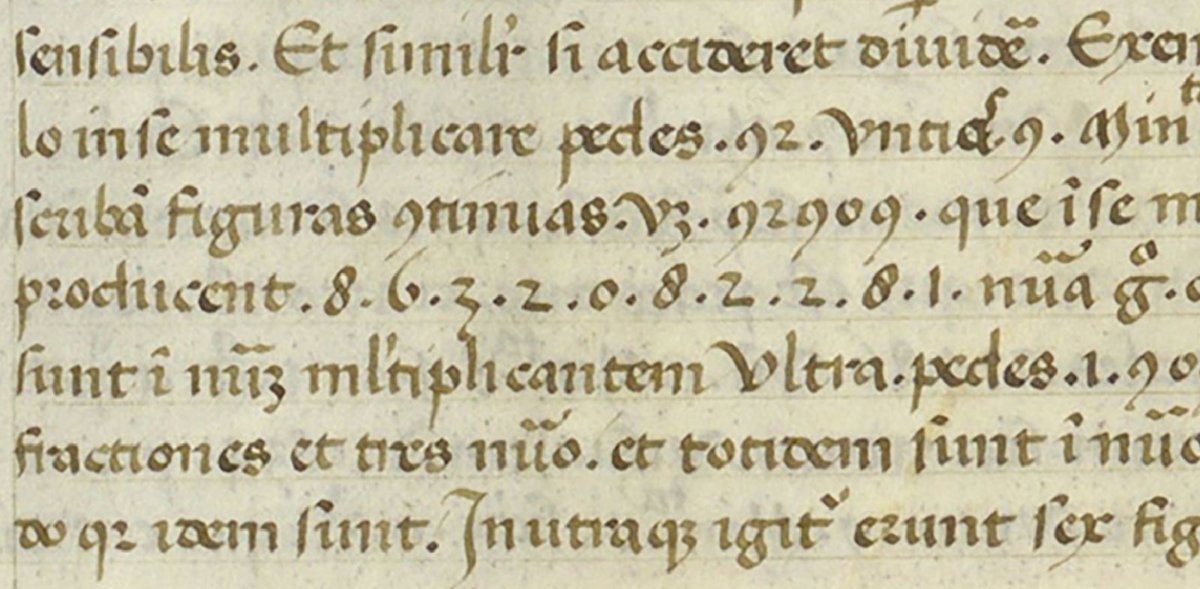 sensibilis. Et simiłr si accideret diuidē. Exem
lo in se multiplicare pedes .92. Vntias 9. Min
scribā figuras ꝯtinuas. Vꝫ. 92909. que ī se m
producent .8.6.3.2.0.8.2.2.8.1. nūa gͦ.
sunt ī nūꝫ młtiplicantem Vltra. pedes .1. 90
fractiones et tres nūo. et totidem sunt ī nūo
do qꝛ idem sunt. In utraqꝫ igit᷑ erunt sex fig